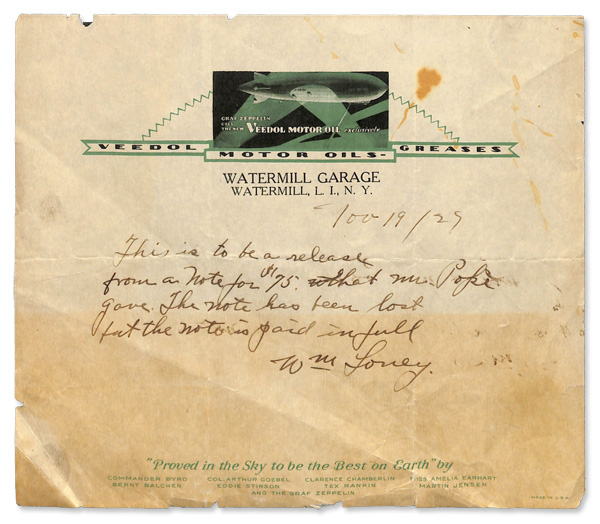 GRAF ZEPPELIN
USES
THE NEW VEEDOL MOTOR OIL exclusively
VEEDOL MOTOR OILS - GREASES
WATERMILL GARAGE
WATERMILL, L. I., N. Y.
Nov 19/29
This is to be a release
from a Note for $75. that Mr Pope
gave. The note has been lost
but the note is paid in full
Wm Loney.
"Proved in the Sky to be the Best on Earth" by
COMMANDER BYRD COL. ARTHUR GOEBEL CLARENCE CHAMBERLIN MISS AMELIA EARHART
BERNT BALCHEN EDDIE STINSON TEX RANKIN MARTIN JENSEN
AND THE GRAF ZEPPELIN
MADE IN U.S.A.